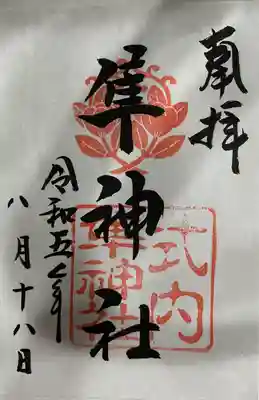 奉拝
隼神社
令和五年
八月十八日
式内
隼神社